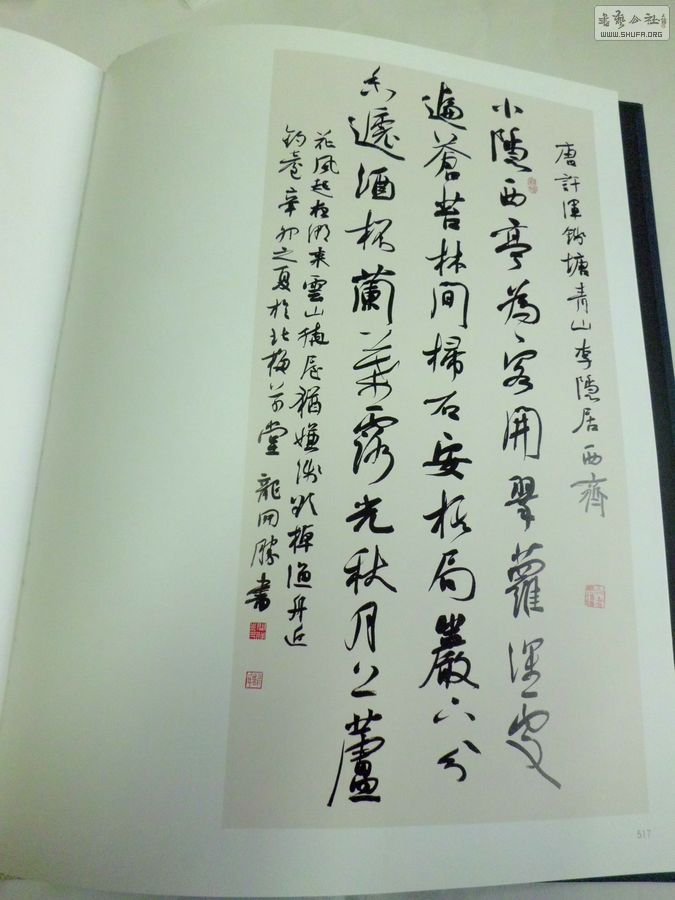 書藝公社
WWW.SHUFA.ORG
唐許渾錢塘青山李隱居西齊
小隱西亭為客開翠蘿深處
遍蒼苔林間掃石安棋局巖下分
泉遞酒杯蘭葉露光秋月上蘆
花風起夜潮來雲山繞屋猶嫌淺欲棹漁舟近
釣臺辛卯之夏於北堂龍開勝書
517